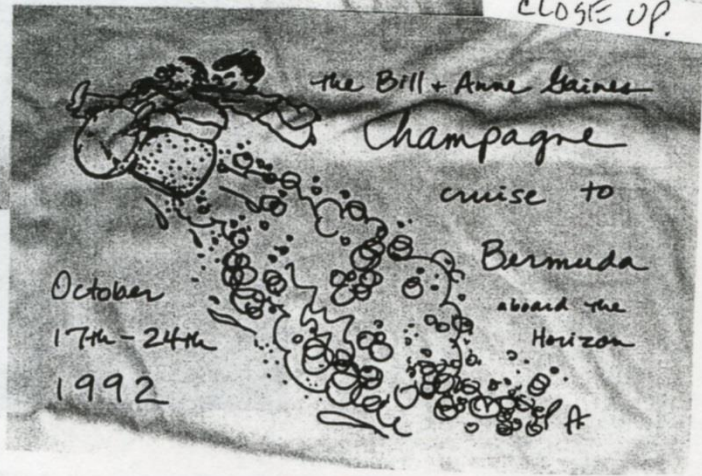 CLOSE UP.
the Bill + Anne Gaines
Champagne
cruise to
Bermuda
aboard the
Horizon
October
17th - 24th
1992